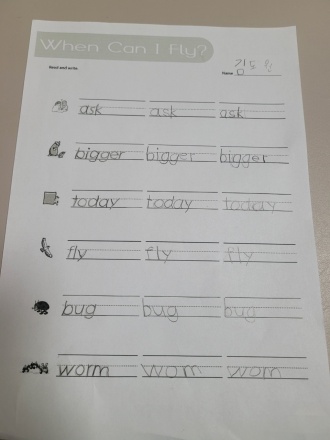 When Can I Fly?
Read and write.
Name
ask ask ask
bigger bigger bigger
today today today
fly fly fly
bug bug bug
worm worm worm